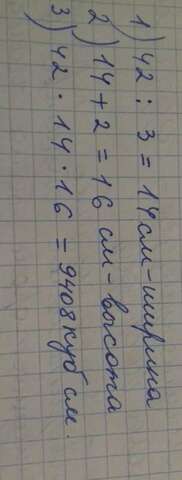 1) 42 : 3 = 14 см - ширина
2) 14 + 2 = 16 см - высота
3) 42 · 14 · 16 = 9408 куб см.